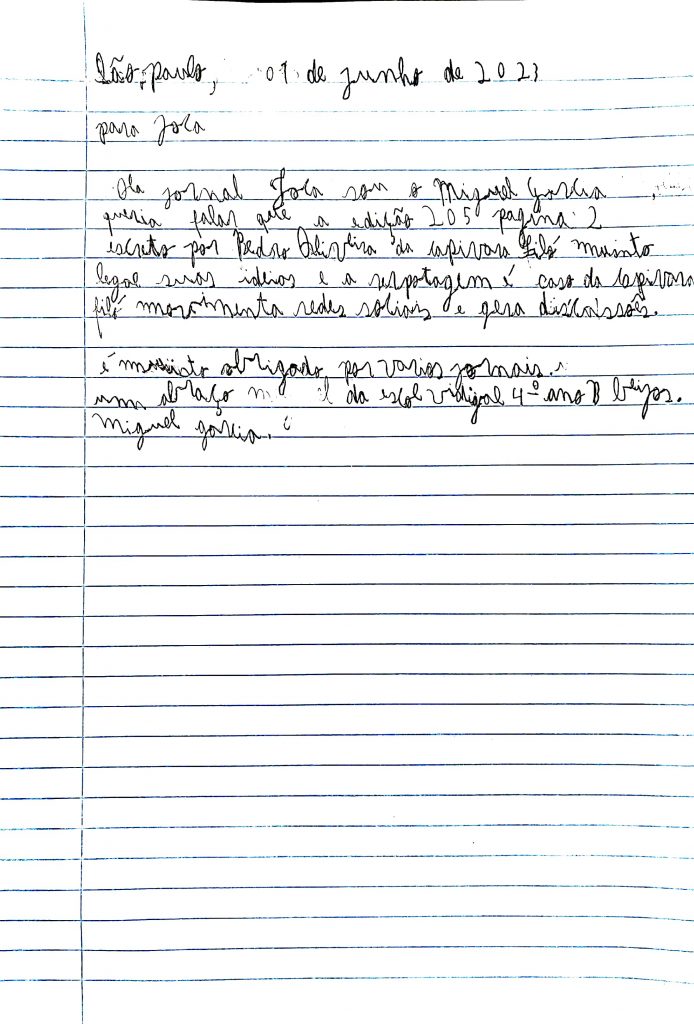 São paulo, 01 de junho de 2023
para Joca
Ola jornal Joca sou o Miguel Garcia
queria falar que a edição 205 pagina 2
escreto por Pedro Oliveira da capivara filó muinto
legal suas ideias e a respotagem é caso da capivara
filó movimenta redes sociais e gera discussões.
é muinto obrigado por varios jornais.
um abraço da escol vidigal 4º ano B beijos.
Miguel garcia.